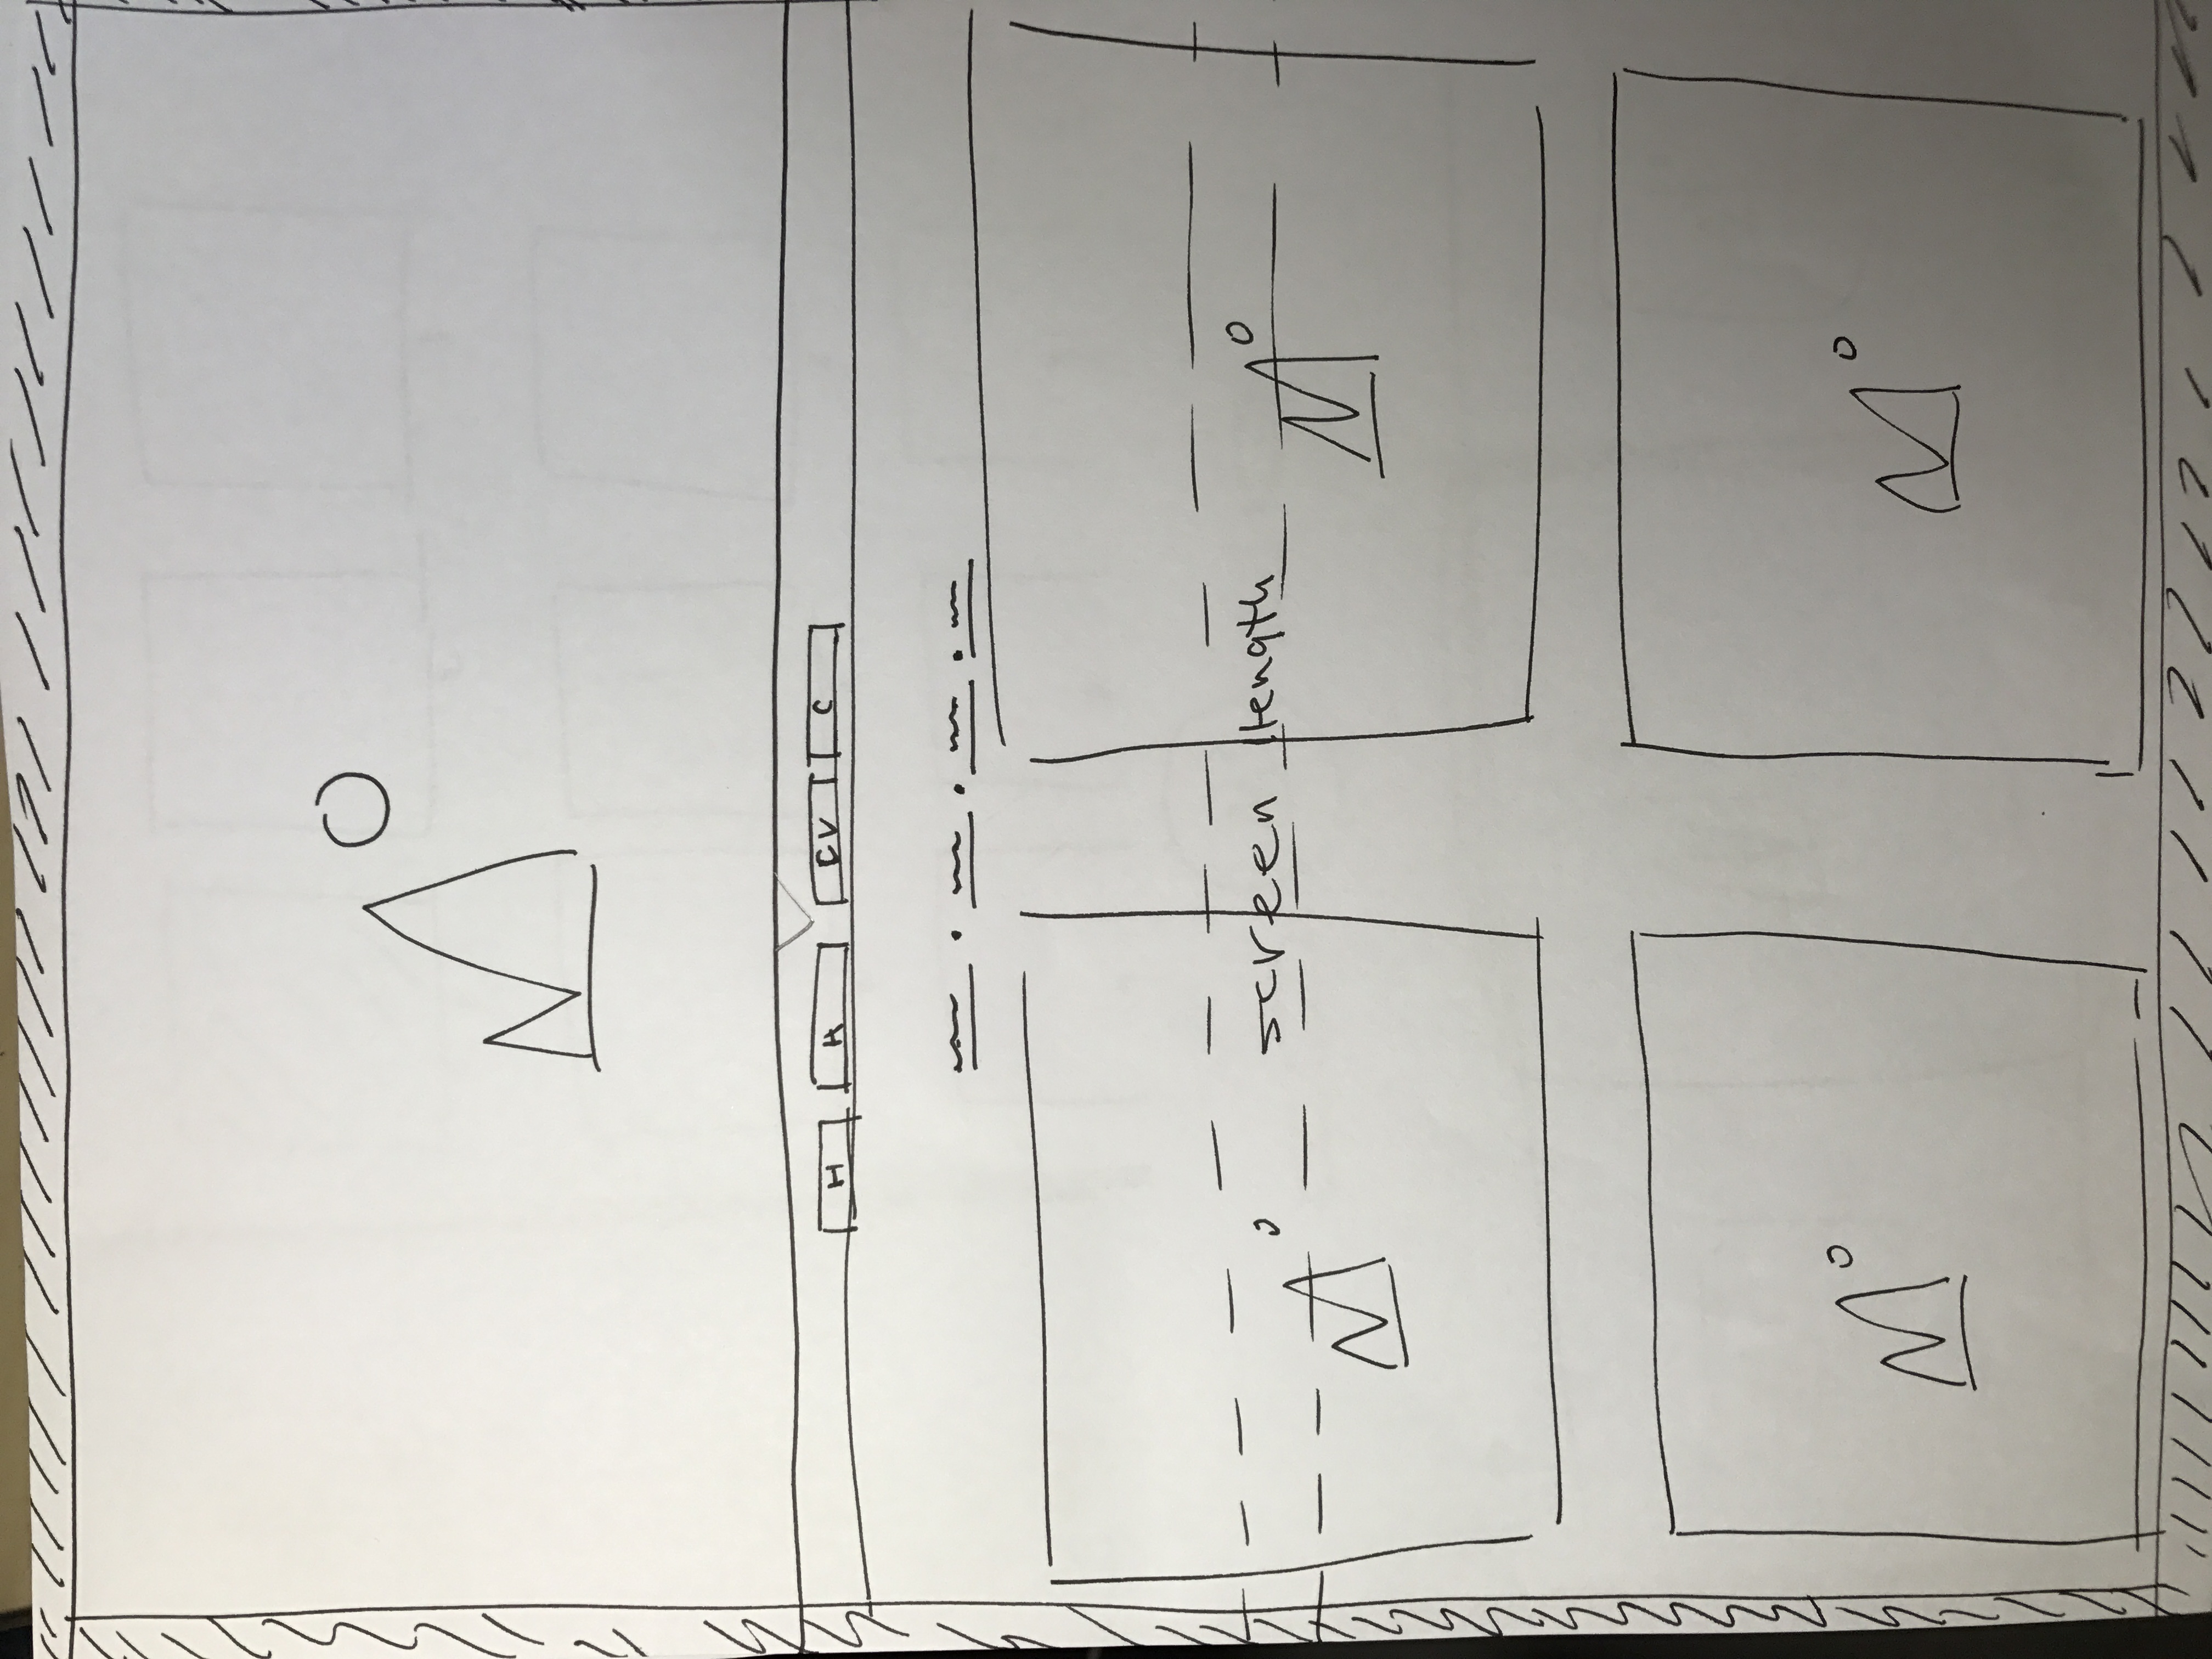 H A CV C
screen length